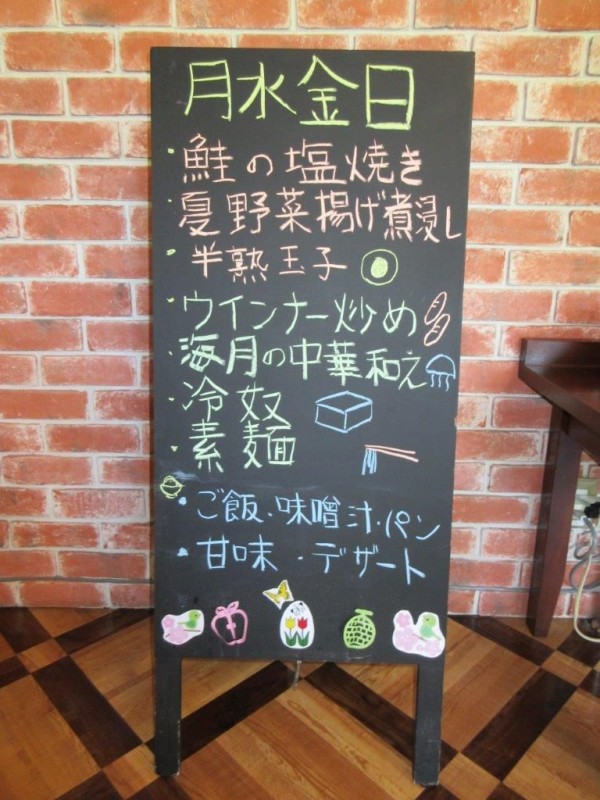 月水金日
・鮭の塩焼き
・夏野菜揚げ煮浸し
・半熟玉子
・ウインナー炒め
・海月の中華和え
・冷奴
・素麺
・ご飯・味噌汁・パン
・甘味・デザート